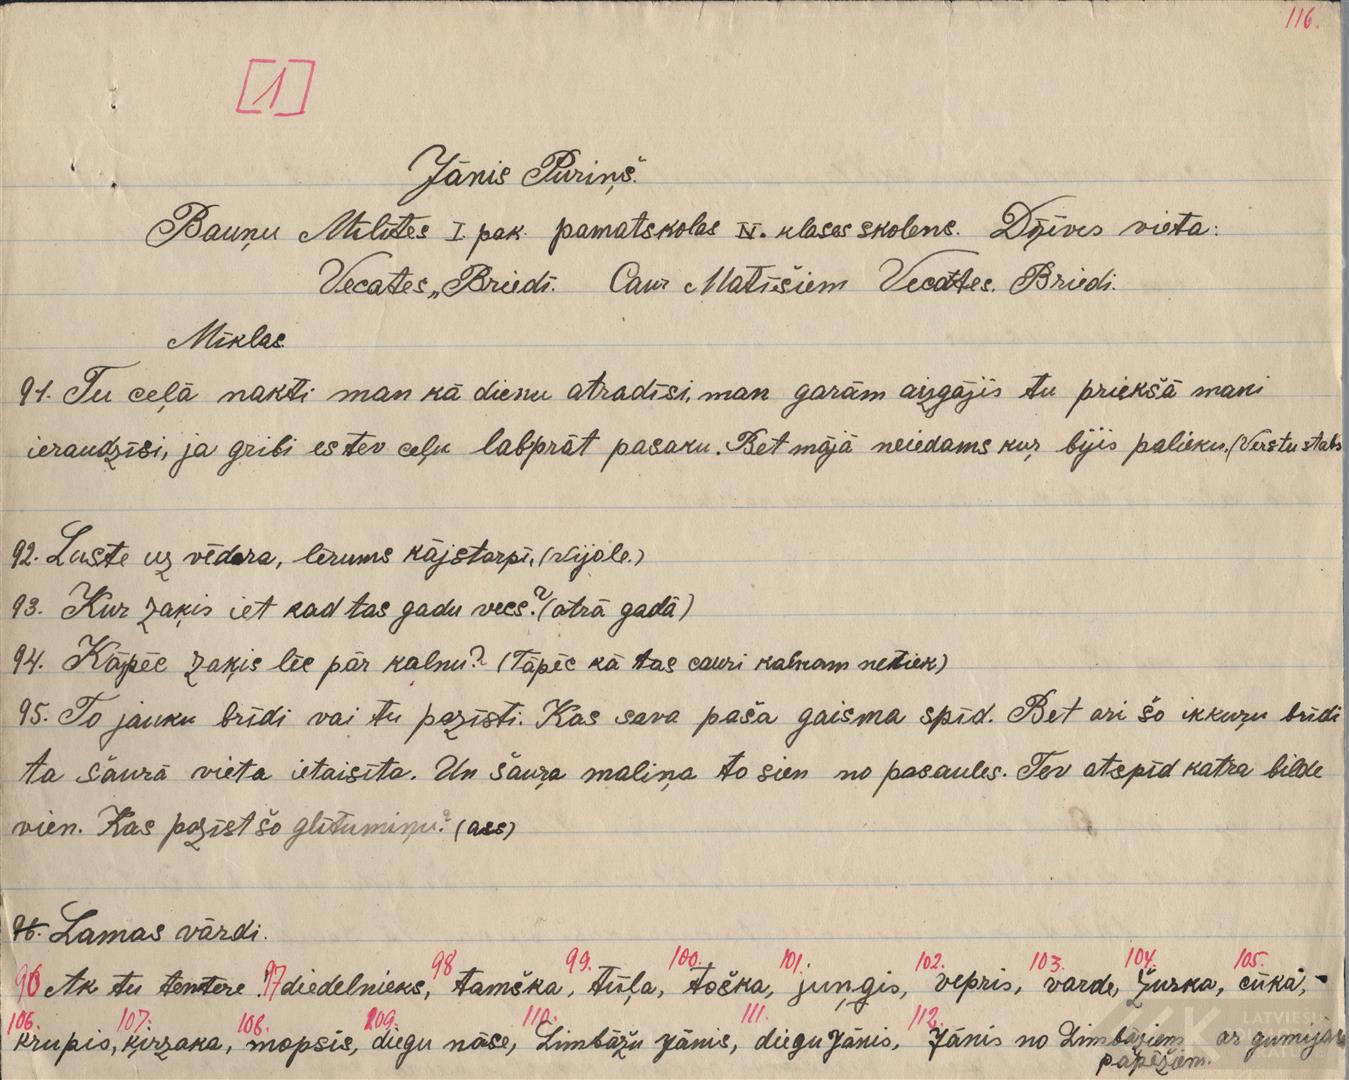 116.
[1]
Jānis Puriņš.
Bauņu Mīlītes I pak. pamatskolas IV. klases skolens. Dzīves vieta:
Vecates „Briedi. Caur Matīšiem Vecates. Briedi.
Mīklas
91. Tu ceļā nakti man kā dienu atradīsi, man garām aizgājis tu priekšā mani
ieraudzīsi, ja gribi es tev ceļu labprāt pasaku. Bet mājā neiedams kur bijis palieku. (Verstu stabs
92. Luste uz vēdera, lērums kājstarpī, (vijole.)
93. Kur zaķis iet kad tas gadu vecs? (otrā gadā)
94. Kāpēc zaķis lēc pār kalnu? (Tāpēc kā tas cauri kalnam netiek)
95. To jauku brīdi vai tu pazīsti. Kas sava paša gaisma spīd. Bet ari šo ikkuŗu brīdi
ta šaurā vieta ietaisīta. Un šauŗa maliņa to sien no pasaules. Tev atspīd katra bilde
vien. Kas pazīst šo glītumiņu? (ass)
96. Lamas vārdi.
96 Ak tu tentere! 97 diedelnieks, 98 tamška, 99. tūļa, 100. toška, 101. juņgis, 102. vepris, 103. varde, 104. žurka, 105. cūka, -
106. krupis, 107. ķirzaka, 108. mopsis, 109. diegu nāse, 110. Limbāžu Jānis, 111. diegu Jānis, 112. Jānis no Limbāžiem ar gumijas
papēžiem.
LATVIEŠU